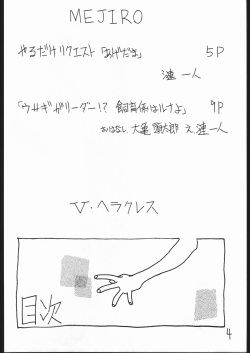 MEJIRO
やるだけリクエスト「あげだま」 5P
漣 一人
「ウサギがリーダー!? 飼育係はルナよ」 9P
おはなし 大亀 頭太郎 え 漣 一人
V・ヘラクレス
目次
4